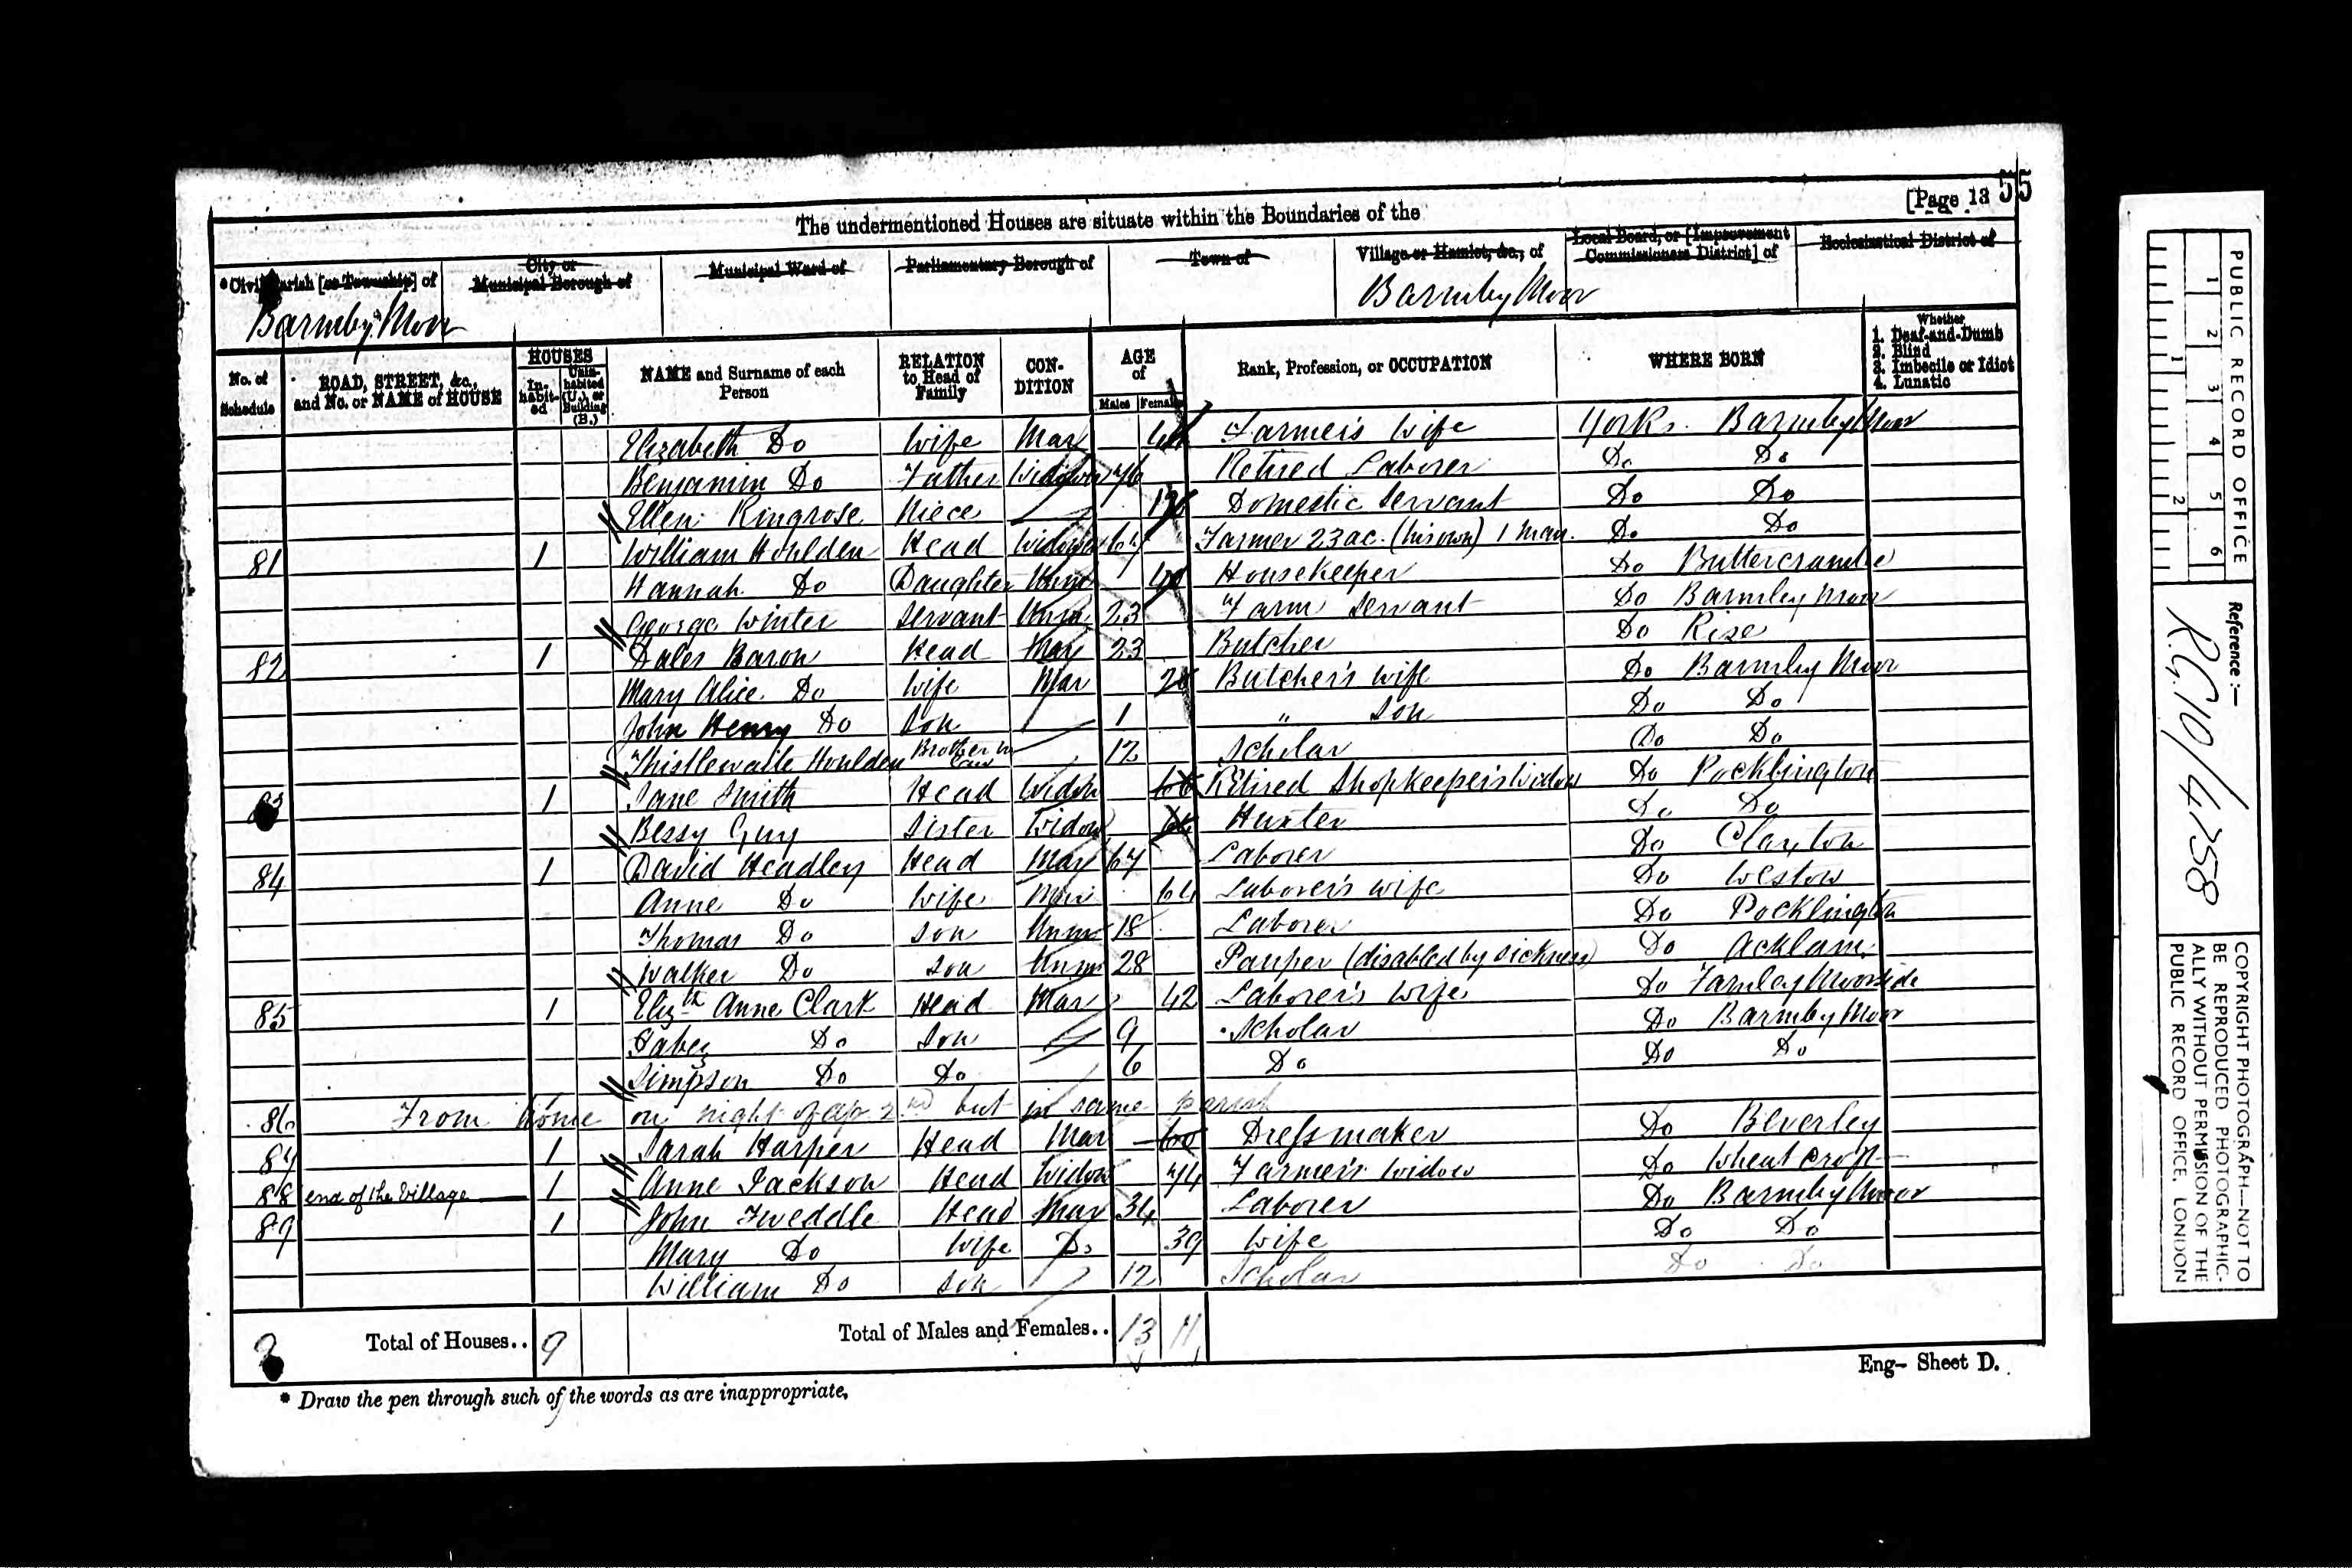 [Page 13 55
The undermentioned Houses are situate within the Boundaries of the
*Civil Parish [or Township] of
City or Municipal Borough of
Municipal Ward of
Parliamentary Borough of
Town of
Village or Hamlet, &c., of
Local Board, or [Improvement Commissioners District] of
Ecclesiastical District of
Barmby Moor
Barmby Moor
No. of Schedule
ROAD, STREET, &c., and No. or NAME of HOUSE
HOUSES
In-habit-ed
Unin-habited (U.), or Building (B.)
NAME and Surname of each Person
RELATION to Head of Family
CON-DITION
AGE of
Males Females
Rank, Profession, or OCCUPATION
WHERE BORN
Whether
1. Deaf-and-Dumb
2. Blind
3. Imbecile or Idiot
4. Lunatic
Elizabeth Do Wife Mar Farmer's Wife Yorks. Barmby Moor
Benjamin Do Father Widower 76 Retired Laborer Do Do
Ellen Ringrose Niece Domestic Servant Do Do
81 1 William Houlden Head Widower 67 Farmer 23 ac. (his own) 1 man. Do Do
Hannah Do Daughter Unm Housekeeper Do Buttercrambe
George Winter Servant Unm 23 Farm Servant Do Barmby Moor
82 1 Dales Baron Head Mar 23 Butcher Do Rise
Mary Alice Do Wife Mar Butcher's wife Do Barmby Moor
John Henry Do Son 1 " Son Do Do
Thistlewaite Houlden Brother in Law 12 Scholar Do Do
83 1 Jane Smith Head Widow Retired Shopkeeper's Widow Do Pocklington
Bessy Guy Sister Widow Do Do
84 1 David Headley Head Mar 67 Laborer Do Claxton
Anne Do Wife Mar 64 Laborer's wife Do Westow
Thomas Do Son Unm 18 Laborer Do Pocklington
Walker Do Son Unm 28 Pauper (disabled by sickness) Do Acklam
85 1 Elizth Anne Clark Head Mar 42 Laborer's Wife Do Farnley Moorside
Jabez Do Son 9 Scholar Do Barmby Moor
Simpson Do Do 6 Do Do Do
86 From home on night of Ap. 2nd but in same parish
87 1 Sarah Harper Head Mar 60 Dressmaker Do Beverley
88 end of the Village 1 Anne Jackson Head Widow 74 Farmer's Widow Do Wheatcroft
89 1 John Tweddle Head Mar 34 Laborer Do Barmby Moor
Mary Do Wife Do 39 Wife Do Do
William Do Son 12 Scholar Do Do
Total of Houses.. 9
Total of Males and Females.. 13 11
* Draw the pen through such of the words as are inappropriate.
Eng- Sheet D.
PUBLIC RECORD OFFICE
1 2 3 4 5 6
1 2
Reference :-
R.G. 10/4758
COPYRIGHT PHOTOGRAPH—NOT TO
BE REPRODUCED PHOTOGRAPHIC-
ALLY WITHOUT PERMISSION OF THE
PUBLIC RECORD OFFICE, LONDON